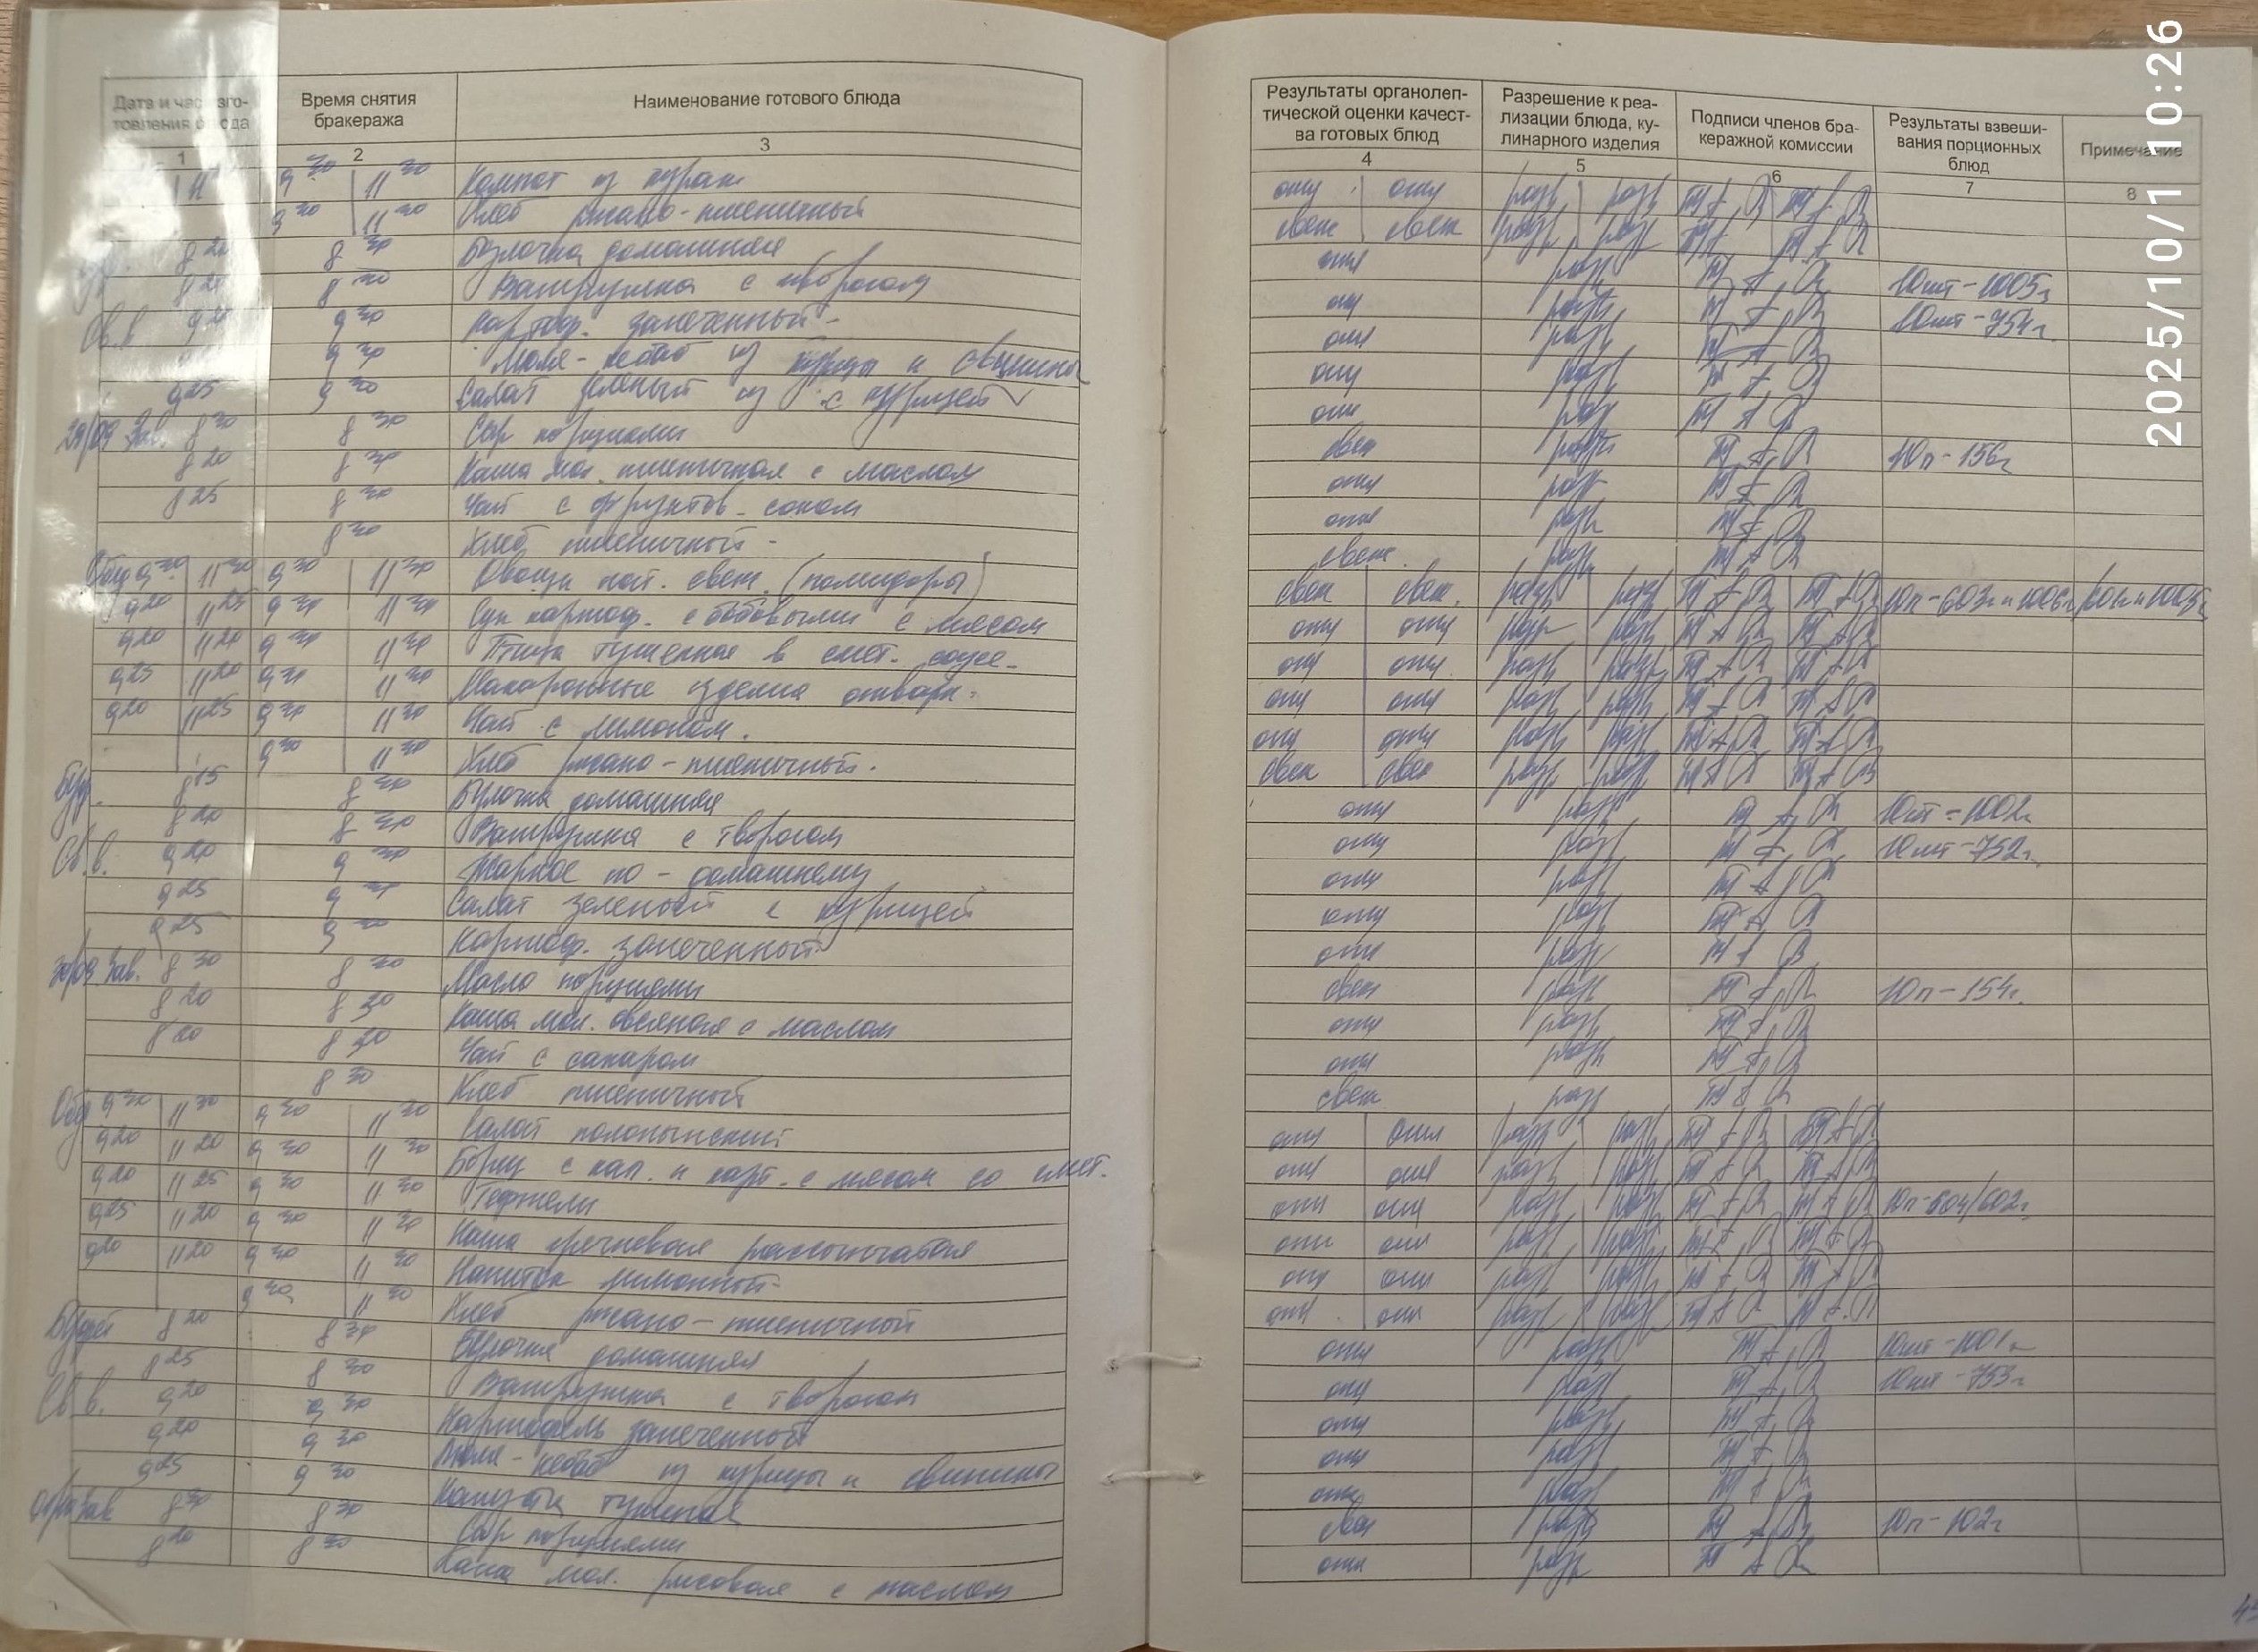 Дата и час изго-
товления блюда
Время снятия
бракеража
Наименование готового блюда
1 2 3
9 30 11 30 Компот из кураги
9 30 11 30 Хлеб ржано-пшеничный
8 20 8 30 Булочка домашняя
8 20 8 30 Ватрушка с творогом
Св.в 9 20 9 30 Картоф. запеченный
9 30 Люля-кебаб из курицы и свинины
9 25 9 30 Салат зеленый с курицей
29/09 Зав. 8 30 8 30 Сыр порциями
8 20 8 30 Каша мол. пшеничная с маслом
8 25 8 30 Чай с фруктов. соком
8 30 Хлеб пшеничный
Обед 9 30 11 30 9 30 11 30 Овощи нат. свеж. (помидоры)
9 20 11 25 9 30 11 30 Суп картоф. с бобовыми с мясом
9 20 11 20 9 30 11 30 Птица тушенная в смет. соусе
9 25 11 20 9 30 11 30 Макаронные изделия отварн.
9 20 11 25 9 30 11 30 Чай с лимоном.
9 30 11 30 Хлеб ржано-пшеничный.
Буф. 8 15 8 30 Булочка домашняя
8 20 8 30 Ватрушка с творогом
Св.в. 9 20 9 30 Жаркое по-домашнему
9 25 9 30 Салат зеленый с курицей
9 25 9 30 Картоф. запеченный
30/09 Зав. 8 30 8 30 Масло порциями
8 20 8 30 Каша мол. овсяная с маслом
8 20 8 30 Чай с сахаром
8 30 Хлеб пшеничный
Обед 9 30 11 30 9 30 11 30 Салат
9 20 11 20 9 30 11 30 Борщ с кап. и карт. с мясом со смет.
9 20 11 25 9 30 11 30 Тефтели
9 25 11 20 9 30 11 30 Каша гречневая рассыпчатая
9 20 11 20 9 30 11 30 Напиток лимонный
9 30 11 30 Хлеб ржано-пшеничный
Буфет 8 20 8 30 Булочка домашняя
8 25 8 30 Ватрушка с творогом
Св.в. 9 20 9 30 Картофель запеченный
9 20 9 30 Люля-кебаб из курицы и свинины
9 25 9 30 Капуста тушеная
Зав 8 30 8 30 Сыр порциями
8 20 8 30 Каша мол. рисовая с маслом
Результаты органолеп-
тической оценки качест-
ва готовых блюд
Разрешение к реа-
лизации блюда, ку-
линарного изделия
Подписи членов бра-
керажной комиссии
Результаты взвеши-
вания порционных
блюд
Примечание
4 5 6 7 8
отл отл разр разр
свеж свеж разр разр
отл разр 10шт-1005г
отл разр 10шт-754г.
отл разр
отл разр
отл разр
свеж разр 10п-156г
отл разр
отл разр
свеж. разр
свеж свеж. разр разр
отл отл разр разр
отл отл разр разр
отл отл разр разр
отл отл разр разр
свеж свеж разр разр
отл разр 10шт-1002г
отл разр 10шт-752г.
отл разр
отл разр
отл разр
свеж разр 10п-154г.
отл разр
отл разр
свеж разр
отл отл разр разр
отл отл разр разр
отл отл разр разр 10п-604/602г
отл отл разр разр
отл отл разр разр
отл отл разр разр
отл разр 10шт-1001г
отл разр 10шт-753г
отл разр
отл разр
отл разр
свеж разр 10п-102г
отл разр
2025/10/1 10:26